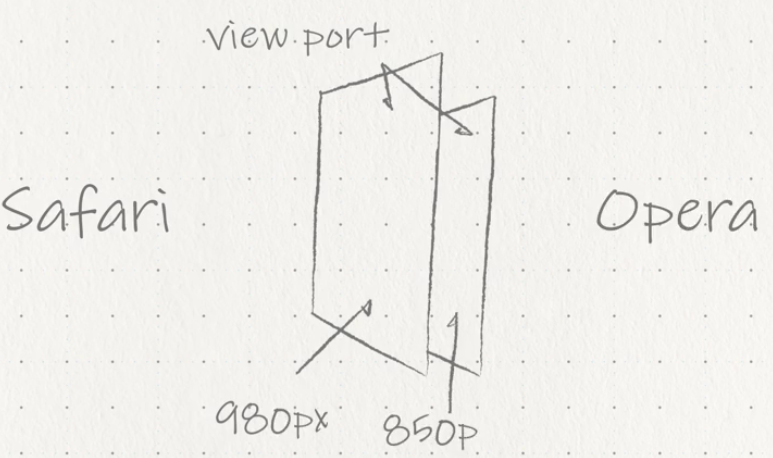 view port
Safari
Opera
980px
850p